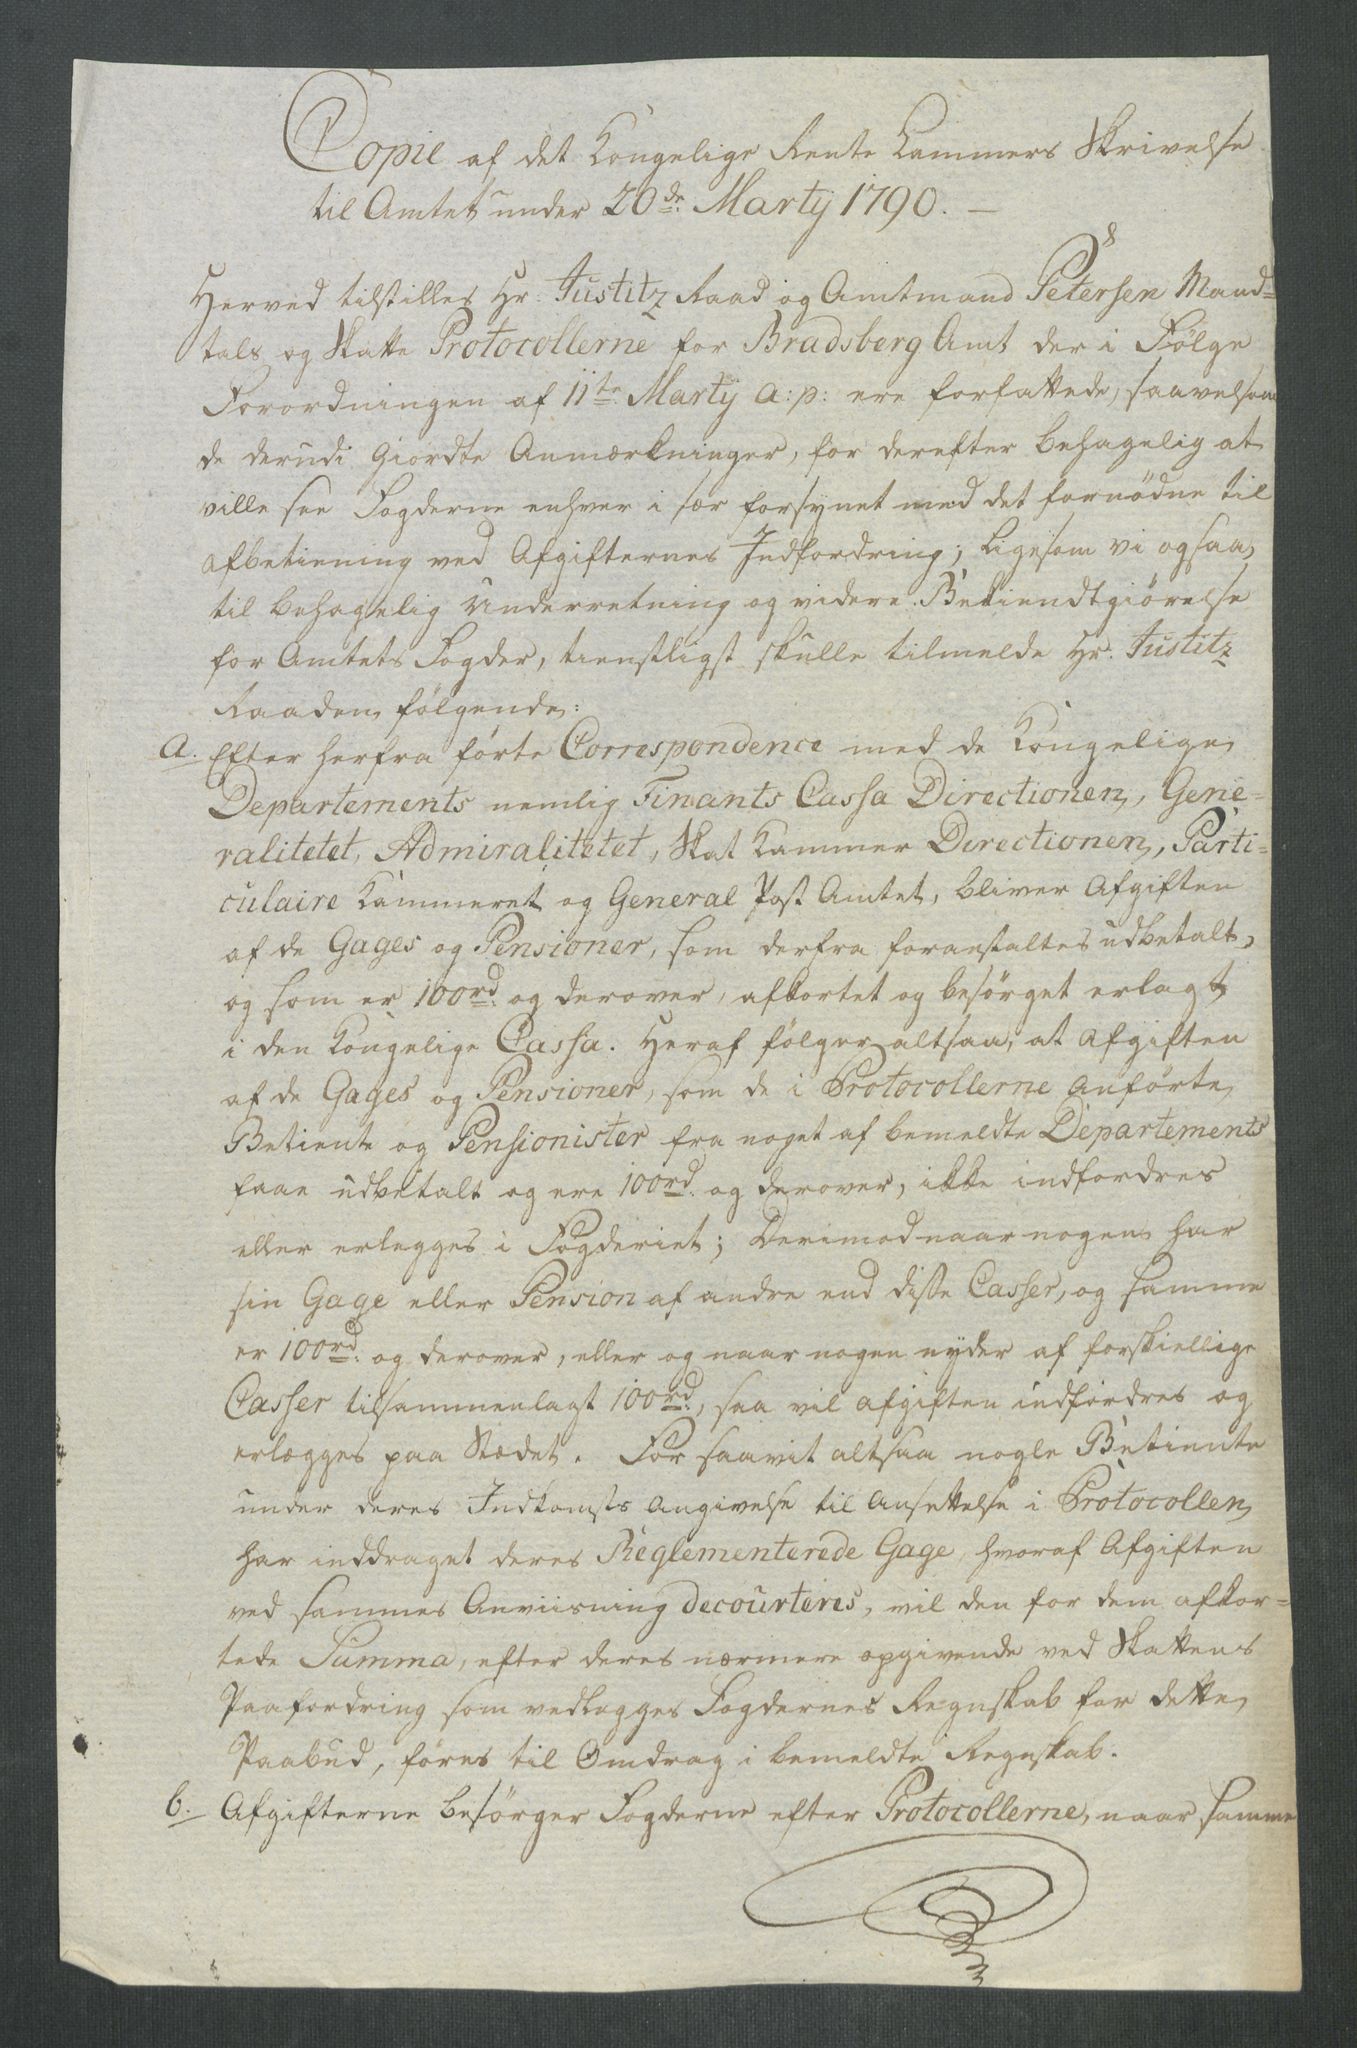 Copie af det Kongelige Rente Kammers Skrivelse
til Amtet under 20de Martij 1790. —
Herved tilstilles Hr. Justitz Raad og Amtmand Petersen Mand=
tals og Skatte Protocollerne for Bradsberg Amt der i Følge
Forordningen af 11te Martij a:p: ere forfattede, saavelsom
de derudi giordte Anmærkninger, for derefter behagelig at
ville see Fogderne enhver i sær forsynet med det fornødne til
afbetiening ved Afgifternes Indfordring; Ligesom vi ogsaa,
til behagelig Underretning og videre Bekiendtgiørelse
for Amtets Fogder, tienstligst skulle tilmelde Hr. Justitz
Raaden følgende:
a. Efter herfra førte Correspondence med de Kongelige
Departements nemlig Finants Cassa Directionen, Gene-
ralitetet, Admiralitetet, Skat Kammer Directionen, Parti-
culaire Kammeret og General Post Amtet, bliver Afgiften
af de Gages og Pensioner, som derfra foranstaltes udbetalt,
og som er 100rd. og derover, afkortet og besørget erlagt
i den Kongelige Cassa. Heraf følger altsaa, at Afgiften
af de Gages og Pensioner, som de i Protocollerne anførte
Betiente og Pensionister fra noget af bemeldte Departements
faae udbetalt og ere 100rd. og derover, ikke indfordres
eller erlegges i Fogderiet; Derimod naar nogen har
sin Gage eller Pension af andre end disse Casser, og samme
er 100rd. og derover, eller og naar nogen nyder af forskiellige
Casser tilsammenlagt 100rd., saa vil afgiften indfordres og
erlægges paa Stædet. For saavit altsaa nogle Betiente
under deres Indkomsts Angivelse til Ansettelse i Protocollen
har inddraget deres Reglementerede Gage, hvoraf Afgiften
ved sammes Anviisning decourteres, vil den for dem afkor=
tede Summa, efter deres nærmere opgivende ved Skattens
Paafordring som vedlegges Fogdernes Regnskab for dette
Paabud, føres til Omdrag i bemeldte Regnskab.
b. Afgifterne besørger Fogderne efter Protocollerne, naar samme